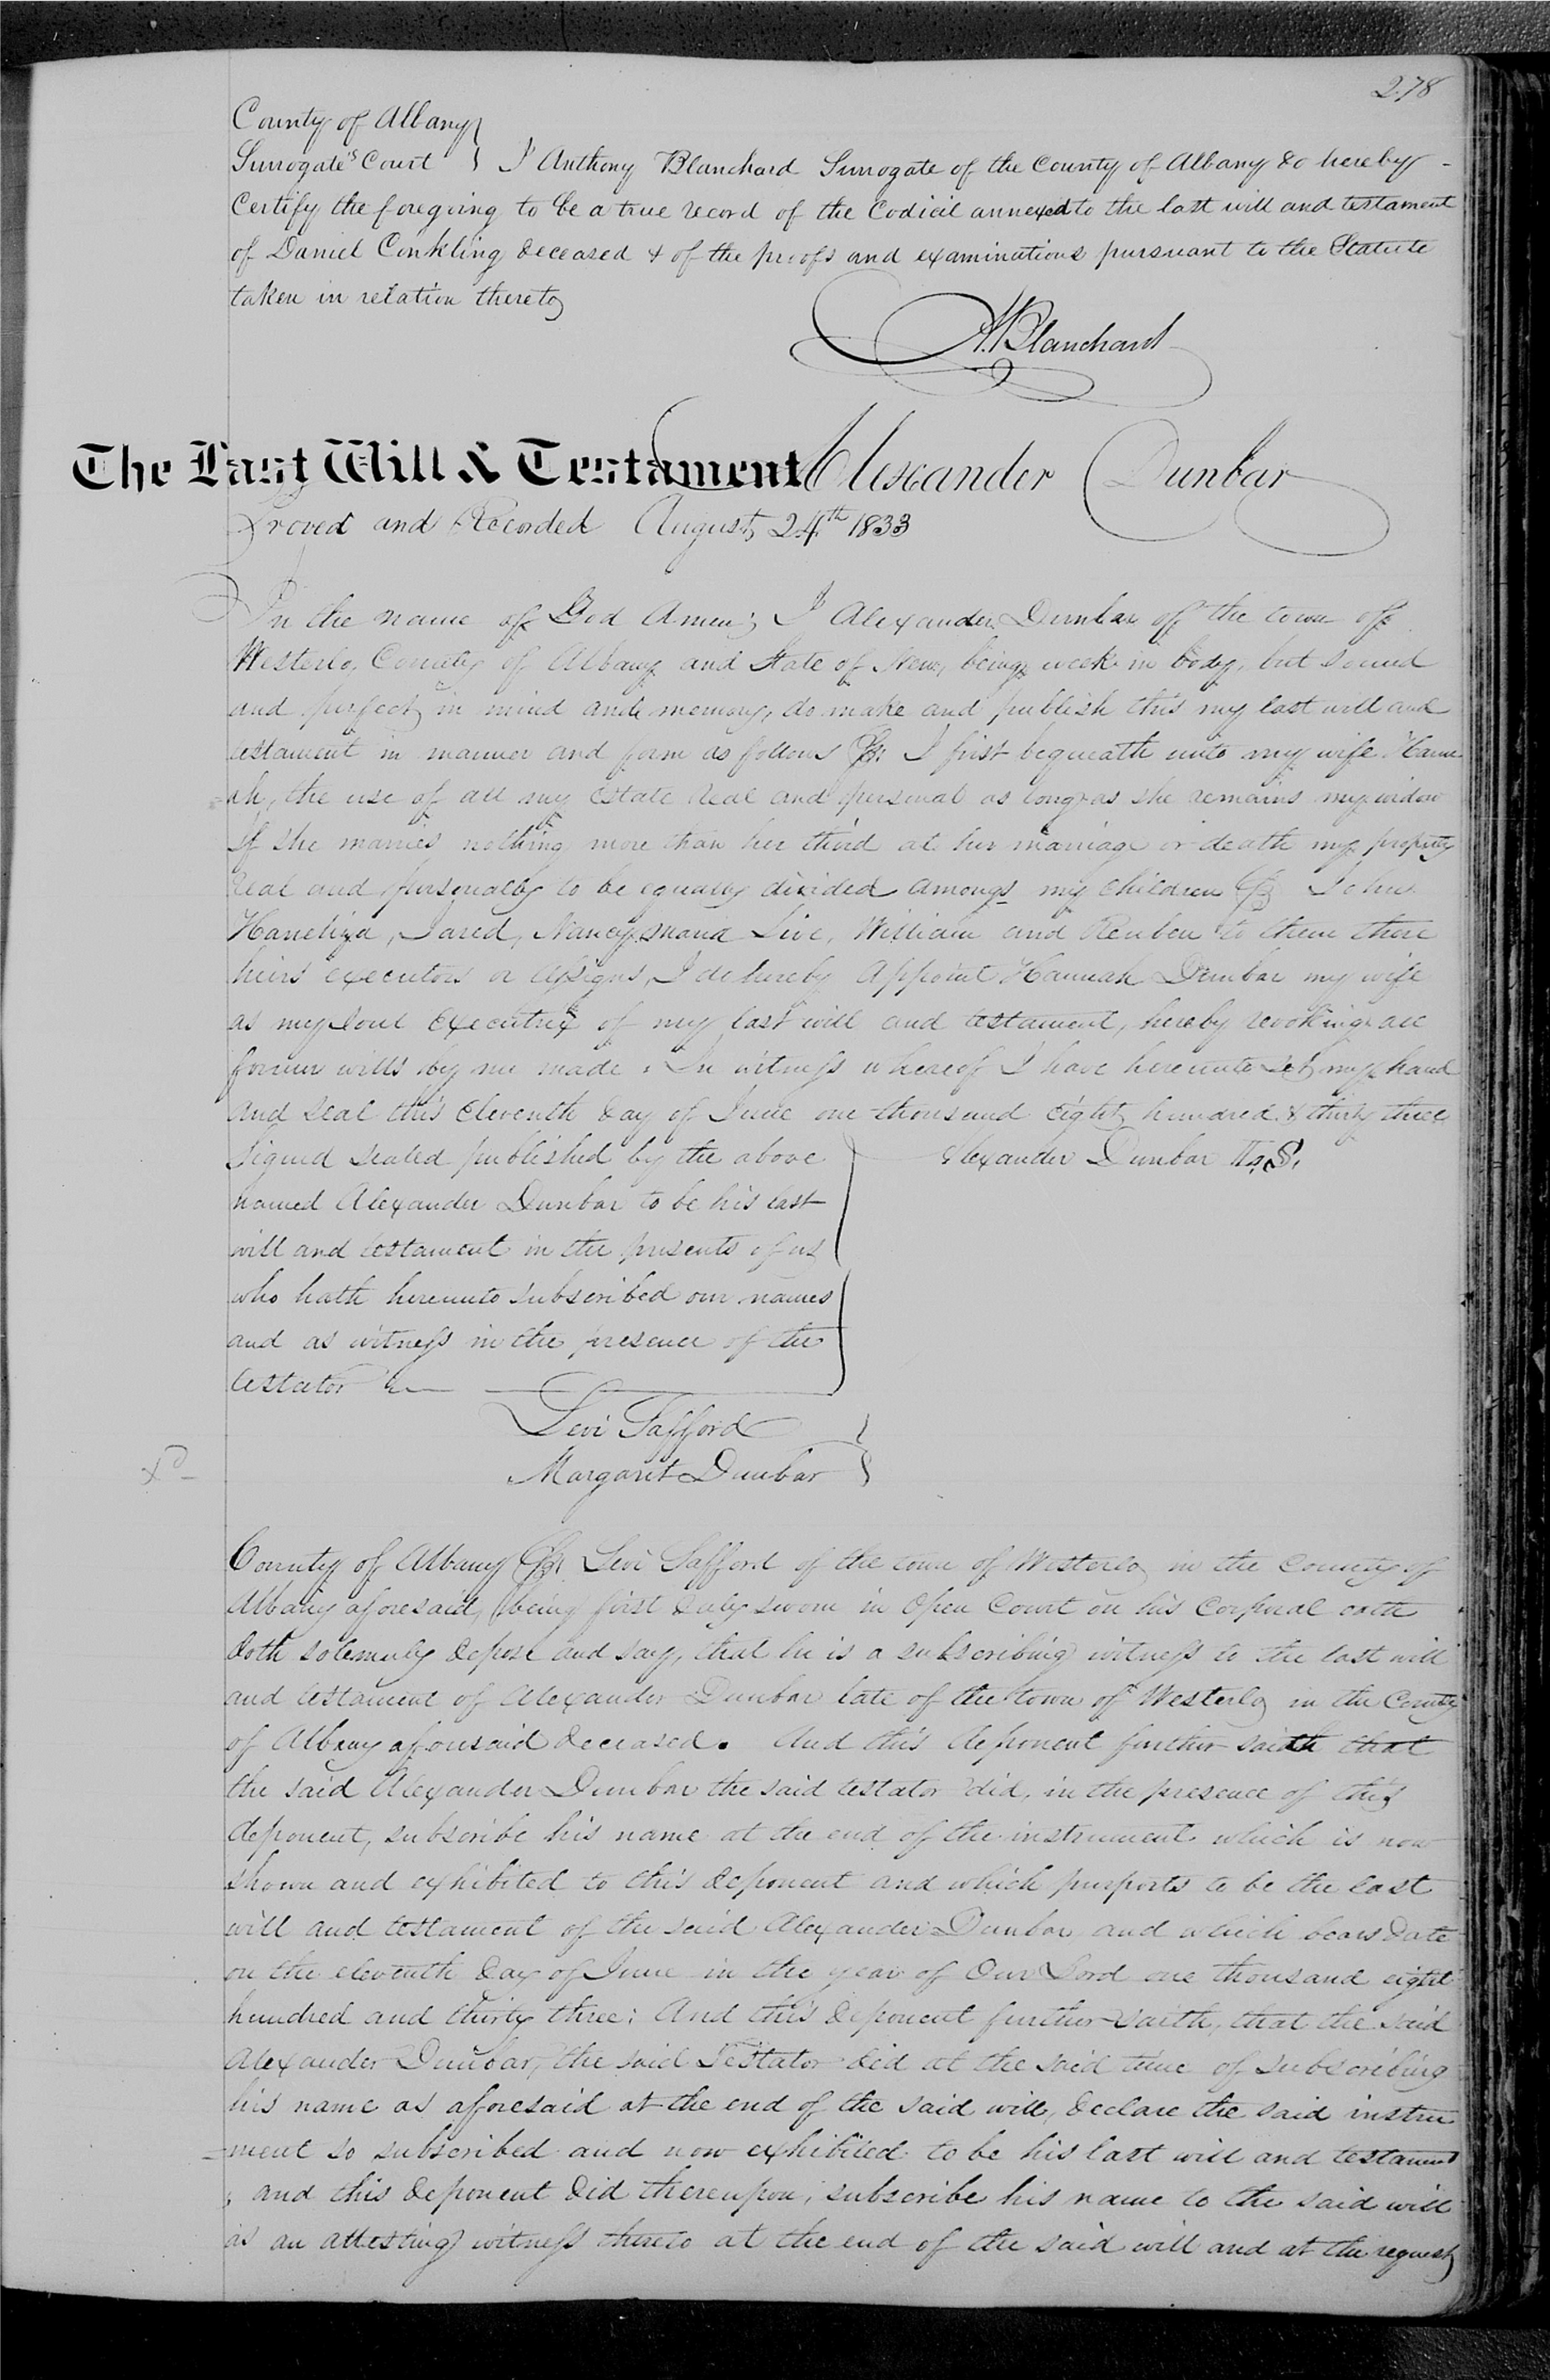 278
County of Albany
Surrogate's Court } I Anthony Blanchard Surrogate of the County of Albany do hereby
Certify the foregoing to be a true record of the Codicil annexed to the last will and testament
of Daniel Conkling deceased & of the proofs and examinations pursuant to the Statute
taken in relation thereto
A. Blanchard
The Last Will & Testament Alexander Dunbar
Proved and Recorded August 24th 1833
In the name of God Amen; I Alexander Dunbar of the town of
Westerlo, County of Albany and State of New, being week in body, but sound
and perfect in mind and memory, do make and publish this my last will and
testament in manner and form as follows I first bequeath unto my wife Hann
=ah, the use of all my estate real and personal as long as she remains my widow
If she marries nothing more than her third at her marriage or death my property
real and personally to be equally divided amongs my children John
Haneliza, Jared, Nancy, Maria Live, William and Reuben to them there
heirs executors or assigns, I do hereby appoint Hannah Dunbar my wife
as my soul Executrix of my last will and testament, hereby revoking all
former wills by me made. In witness whereof I have hereunto set my hand
and seal this eleventh day of June one thousand eight hundred & thirty three
Signed sealed published by the above } Alexander Dunbar L.S.
named Alexander Dunbar to be his last
will and testament in the presents of us
who hath hereunto subscribed our names
and as witness in the presence of the
testator
Levi Safford
Margaret Dunbar
County of Albany Ss. Levi Safford of the town of Westerlo in the County of
Albany aforesaid, being first duly sworn in Open Court on his Corporal oath
doth solemnly depose and say, that he is a subscribing witness to the last will
and testament of Alexander Dunbar late of the town of Westerlo in the County
of Albany aforesaid deceased. And this deponent further saith that
the said Alexander Dunbar the said testator did, in the presence of this
deponent, subscribe his name at the end of the instrument which is now
shown and exhibited to this deponent and which purports to be the last
will and testament of the said Alexander Dunbar and which bears date
on the eleventh day of June in the year of Our Lord one thousand eight
hundred and thirty three; And this deponent further saith, that the said
Alexander Dunbar, the said Testator did at the said time of subscribing
his name as aforesaid at the end of the said will, declare the said instru
=ment so subscribed and now exhibited to be his last will and testament
, and this deponent did thereupon, subscribe his name to the said will
as an attesting witness thereto at the end of the said will and at the request